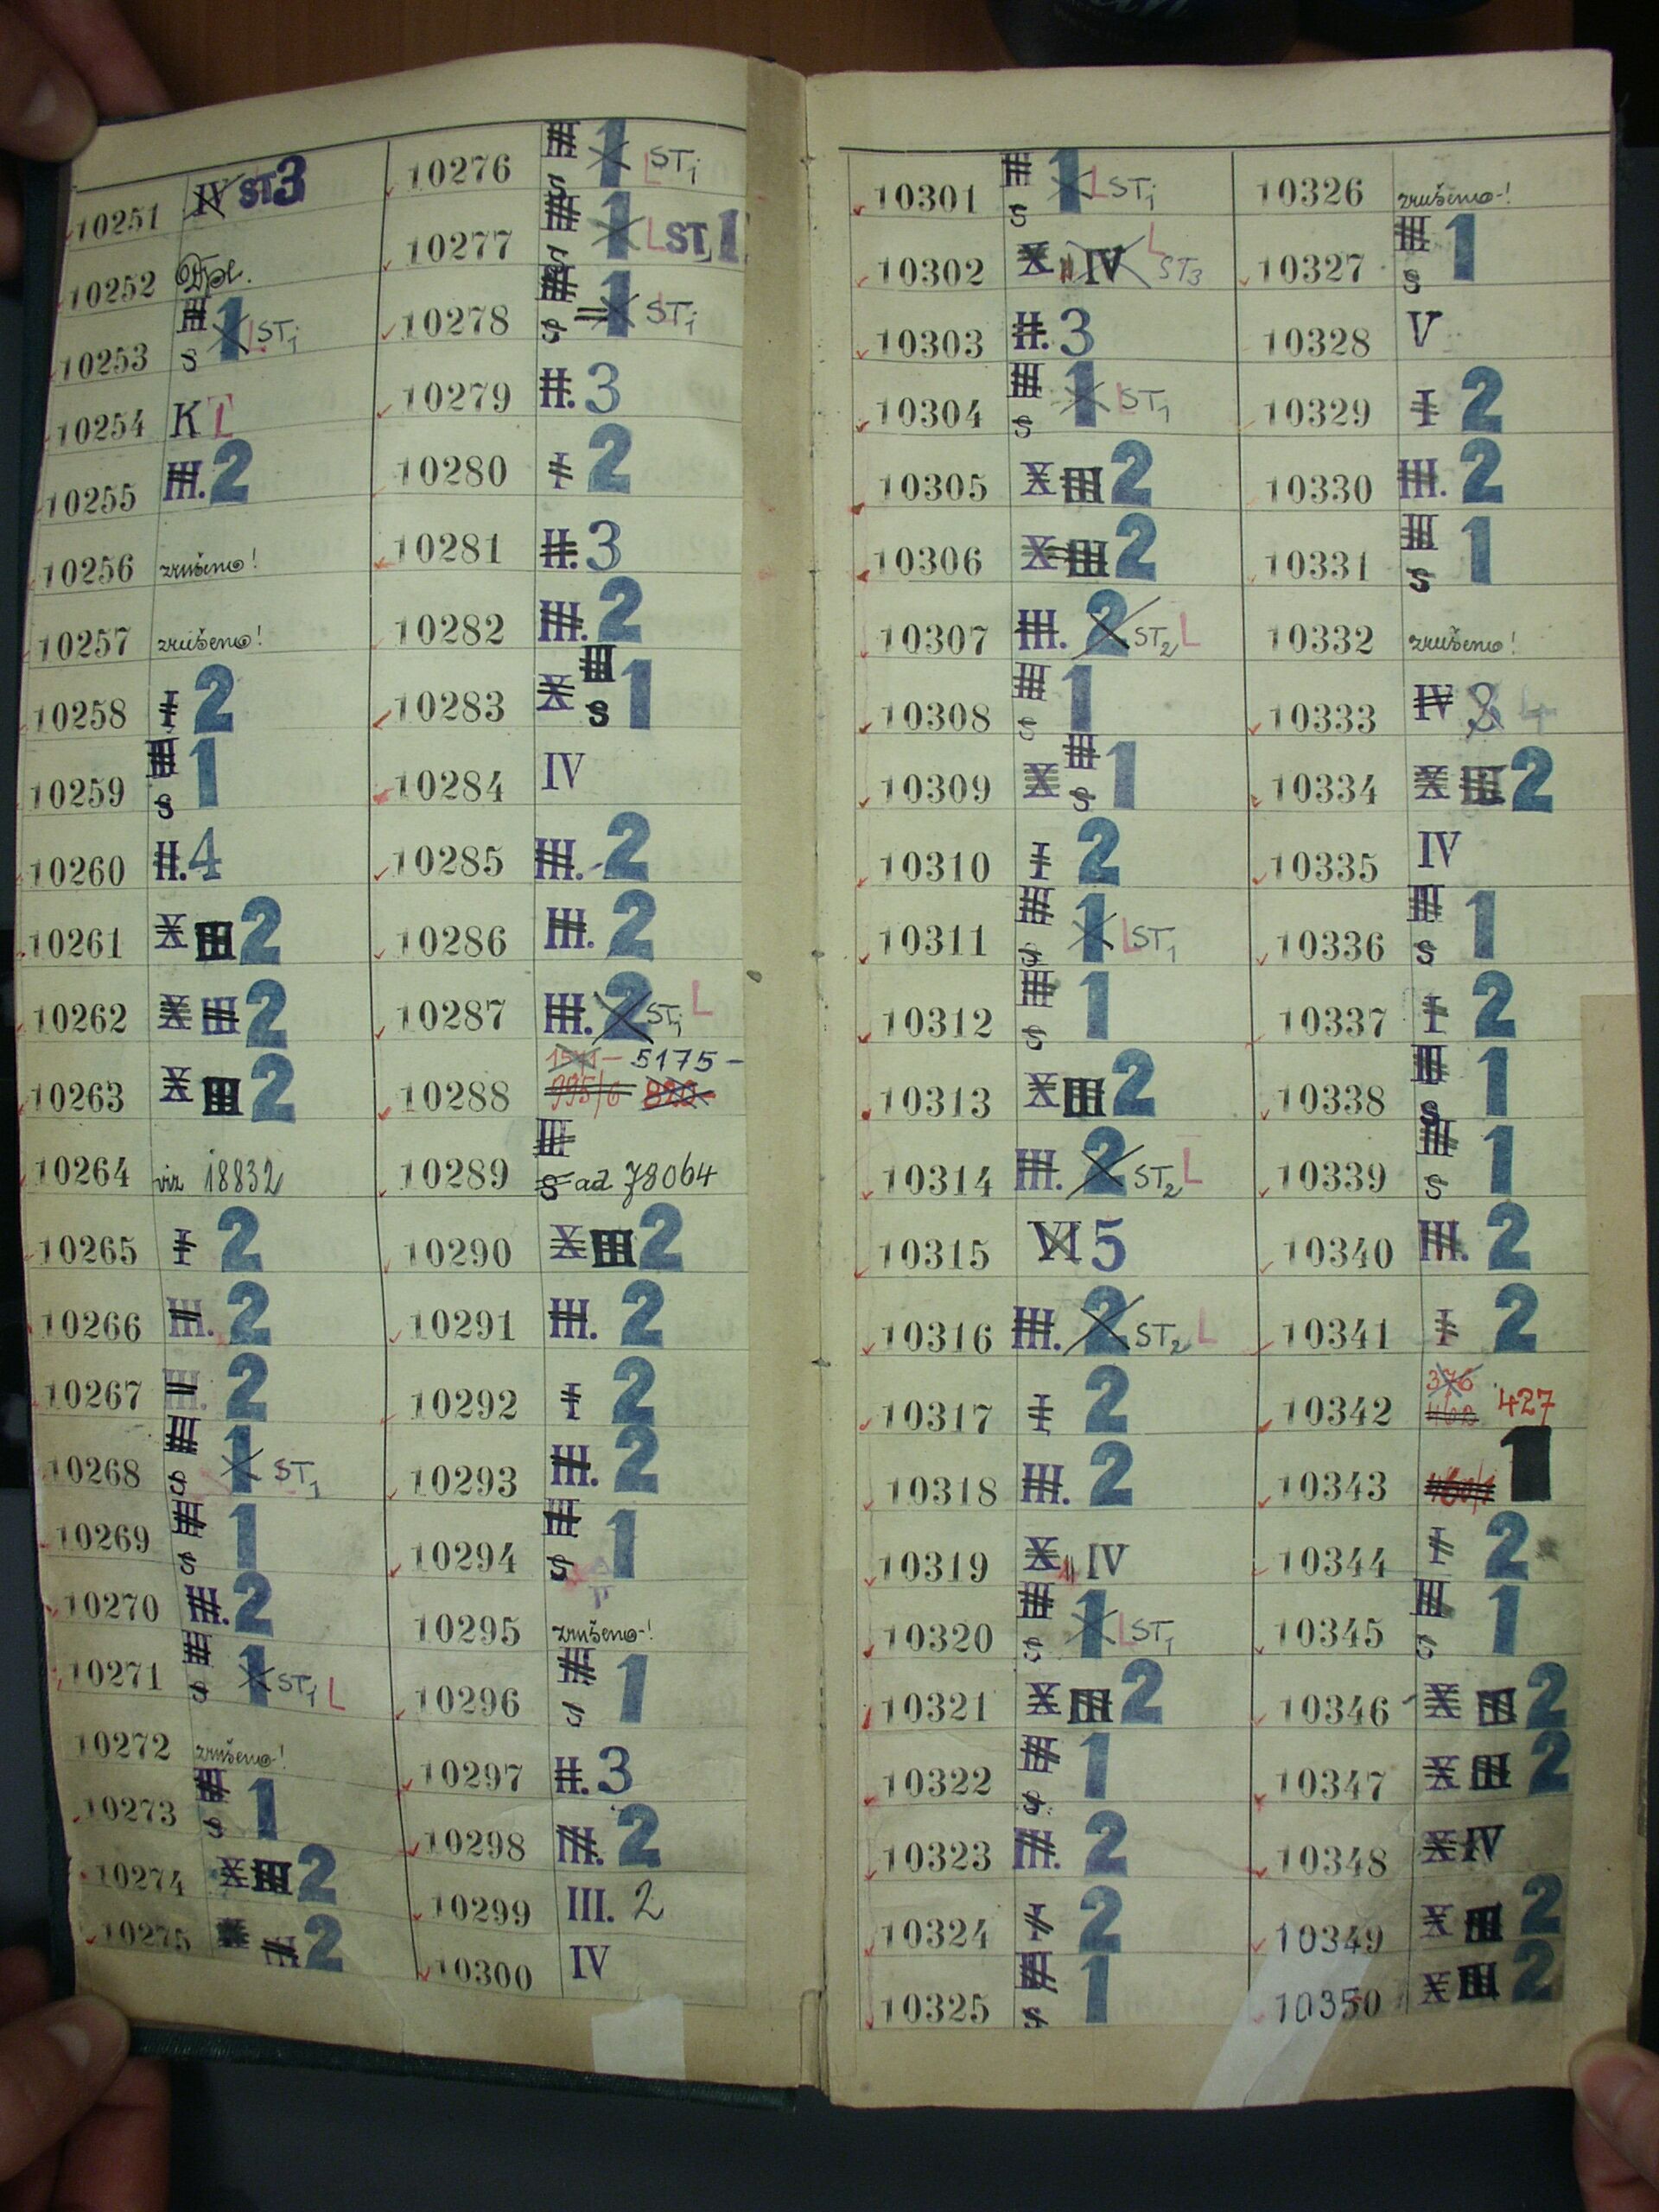 10251 IV ST3
10252 Dpl.
10253 III S 1 L ST1
10254 K L
10255 III. 2
10256 zrušeno!
10257 zrušeno!
10258 I 2
10259 III S 1
10260 II. 4
10261 X III 2
10262 X III 2
10263 X III 2
10264 viz 18832
10265 I 2
10266 III. 2
10267 III. 2
10268 III S 1 ST1
10269 III S 1
10270 III. 2
10271 III S 1 ST1 L
10272 zrušeno-!
10273 III S 1
10274 X III 2
10275 III 2
10276 III S 1 L ST1
10277 III S 1 L ST1
10278 III S 1 L ST1
10279 II. 3
10280 I 2
10281 II. 3
10282 III. 2
10283 X III S 1
10284 IV
10285 III. 2
10286 III. 2
10287 III. 2 ST1 L
10288 5175-
10289 III S ad 78064
10290 X III 2
10291 III. 2
10292 I 2
10293 III. 2
10294 III S 1
10295 zrušeno-!
10296 III S 1
10297 II. 3
10298 III. 2
10299 III. 2
10300 IV
10301 III S 1 L ST1
10302 X IV L ST3
10303 II. 3
10304 III S 1 L ST1
10305 X III 2
10306 X III 2
10307 III. 2 ST2 L
10308 III S 1
10309 X III S 1
10310 I 2
10311 III S 1 L ST1
10312 III S 1
10313 X III 2
10314 III. 2 ST2 L
10315 VI 5
10316 III. 2 ST2 L
10317 I 2
10318 III. 2
10319 X IV
10320 III S 1 L ST1
10321 X III 2
10322 III S 1
10323 III. 2
10324 I 2
10325 III S 1
10326 zrušeno-!
10327 III S 1
10328 V
10329 I 2
10330 III. 2
10331 III S 1
10332 zrušeno!
10333 IV 3 4
10334 X III 2
10335 IV
10336 III S 1
10337 I 2
10338 III S 1
10339 III S 1
10340 III. 2
10341 I 2
10342 376 427
10343 1
10344 I 2
10345 III S 1
10346 X III 2
10347 X III 2
10348 X IV
10349 X III 2
10350 X III 2